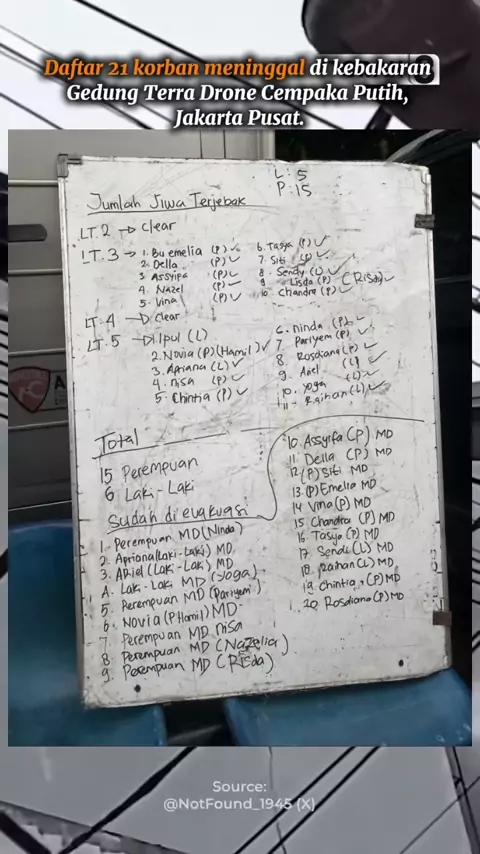 Daftar 21 korban meninggal di kebakaran
Gedung Terra Drone Cempaka Putih,
Jakarta Pusat.
L : 5
P : 15
Jumlah Jiwa Terjebak
LT. 2 → Clear
LT. 3 → 1. Bu emelia (P) ✓
2. Della (P) ✓
3. Assyifa (P) ✓
4. Nazel (P) ✓
5. Vina (P) ✓
6. Tasya (P) ✓
7. Siti (P) ✓
8. Sendy (L) ✓
9. Lisda (P) ✓ (Risda) ✓
10. Chandra (P) ✓
LT. 4 → Clear
LT. 5 → 1. Ipul (L)
2. Novia (P) (Hamil) ✓
3. Apriana (L) ✓
4. Nisa (P) ✓
5. Chintia (P) ✓
6. Ninda (P) ✓
7. Pariyem (P) ✓
8. Rosdiana (P) ✓
9. Ariel (L) ✓
10. Yoga (L) ✓
11. Raihan (L) ✓
Total
15 Perempuan
6 Laki-Laki
Sudah di evakuasi
1. Perempuan MD (Ninda)
2. Apriana (Laki-Laki) MD
3. Ariel (Laki-Laki) MD
4. Laki-Laki MD (Yoga)
5. Perempuan MD (Pariyem)
6. Novia (P Hamil) MD
7. Perempuan MD Nisa
8. Perempuan MD (Nazelia)
9. Perempuan MD (Risda)
10. Assyifa (P) MD
11. Della (P) MD
12. (P) Siti MD
13. (P) Emelia MD
14. Vina (P) MD
15. Chandra (P) MD
16. Tasya (P) MD
17. Sendi (L) MD
18. Raihan (L) MD
19. Chintia (P) MD
20. Rosdiana (P) MD
Source:
@NotFound_1945 (X)